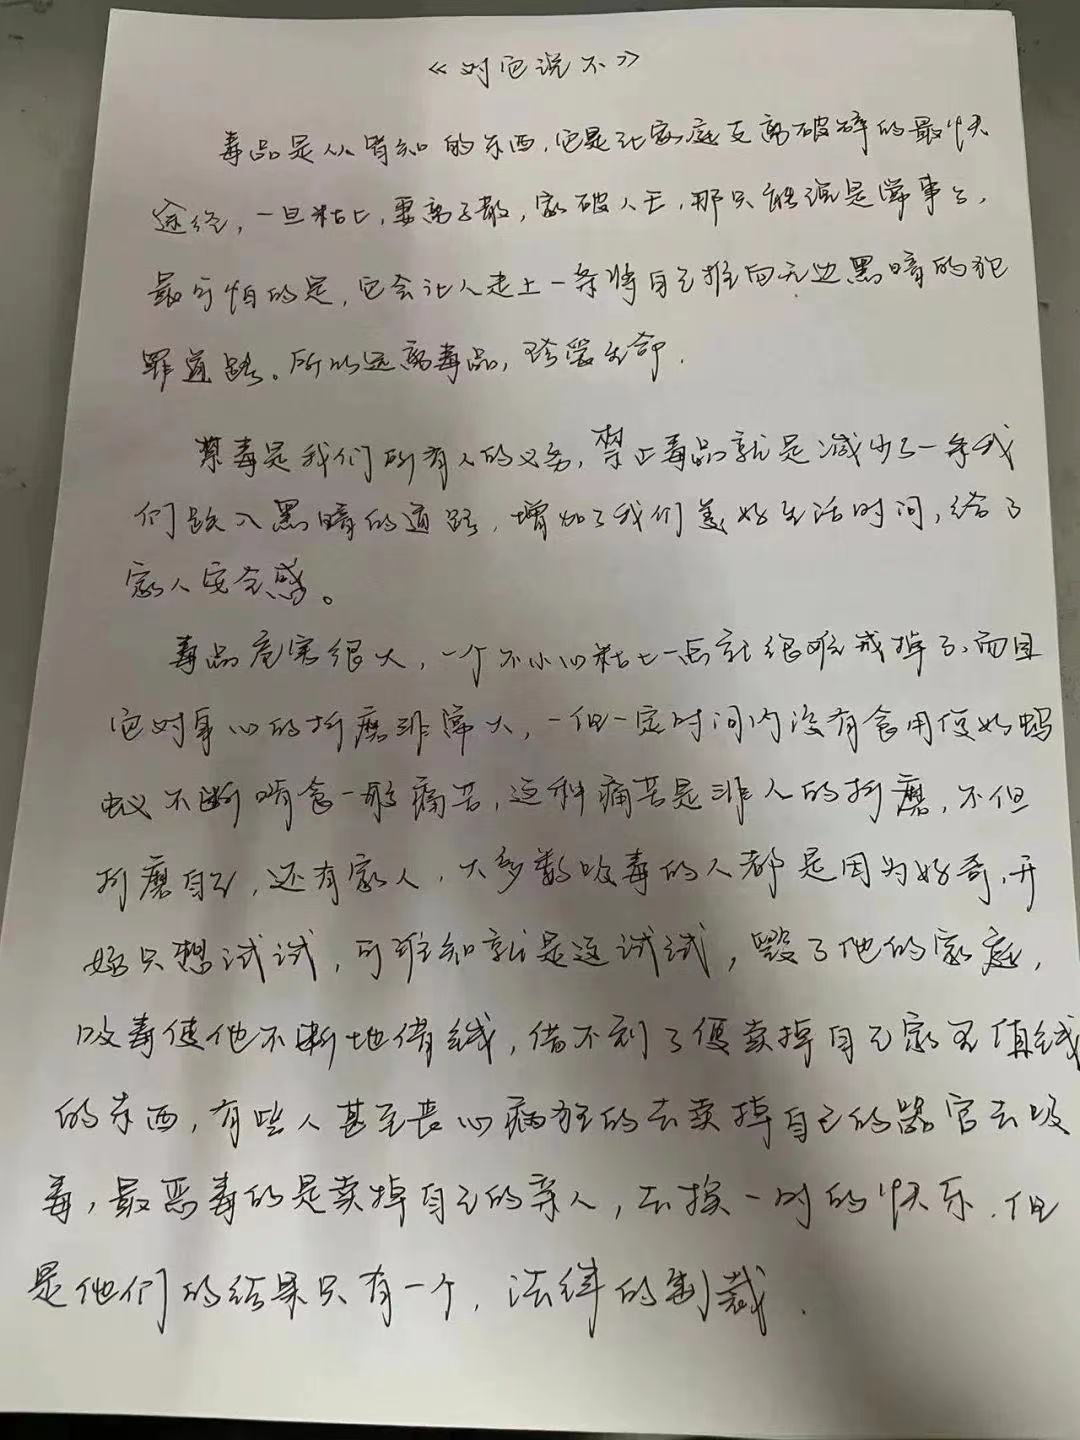 《对它说不》
毒品是从皆知的东西，它是让家庭支离破碎的最快
途径，一旦粘上，妻离子散，家破人亡，那只能说是常事了，
最可怕的是，它会让人走上一条将自己推向无边黑暗的犯
罪道路。所以远离毒品，珍爱生命.
禁毒是我们所有人的义务，禁止毒品就是减少了一条我
们跌入黑暗的道路，增加了我们美好生活时间，给了
家人安全感。
毒品危害很大，一个不小心粘上一点就很难戒掉了，而且
它对身心的折磨非常大，一但一定时间内没有食用便如蚂
蚁不断啃食一般痛苦，这种痛苦是非人的折磨，不但
折磨自己，还有家人，大多数吸毒的人都是因为好奇，开
始只想试试，可谁知就是这试试，毁了他的家庭，
吸毒使他不断地借钱，借不到了便卖掉自己家里值钱
的东西，有些人甚至丧心病狂的去卖掉自己的器官去吸
毒，最恶毒的是卖掉自己的亲人，去换一时的快乐.但
是他们的结果只有一个，法律的制裁.